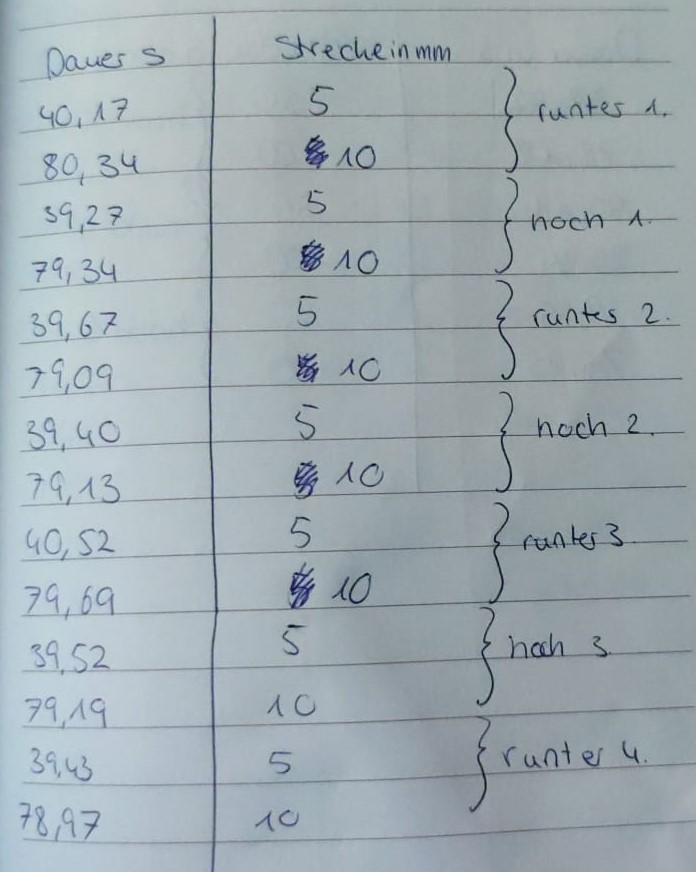 Dauer s Strecke in mm
40,17 5 runter 1.
80,34 10
39,27 5 hoch 1.
79,34 10
39,67 5 runter 2.
79,09 10
39,40 5 hoch 2.
79,13 10
40,52 5 runter 3.
79,69 10
39,52 5 hoch 3.
79,19 10
39,43 5 runter 4.
78,97 10